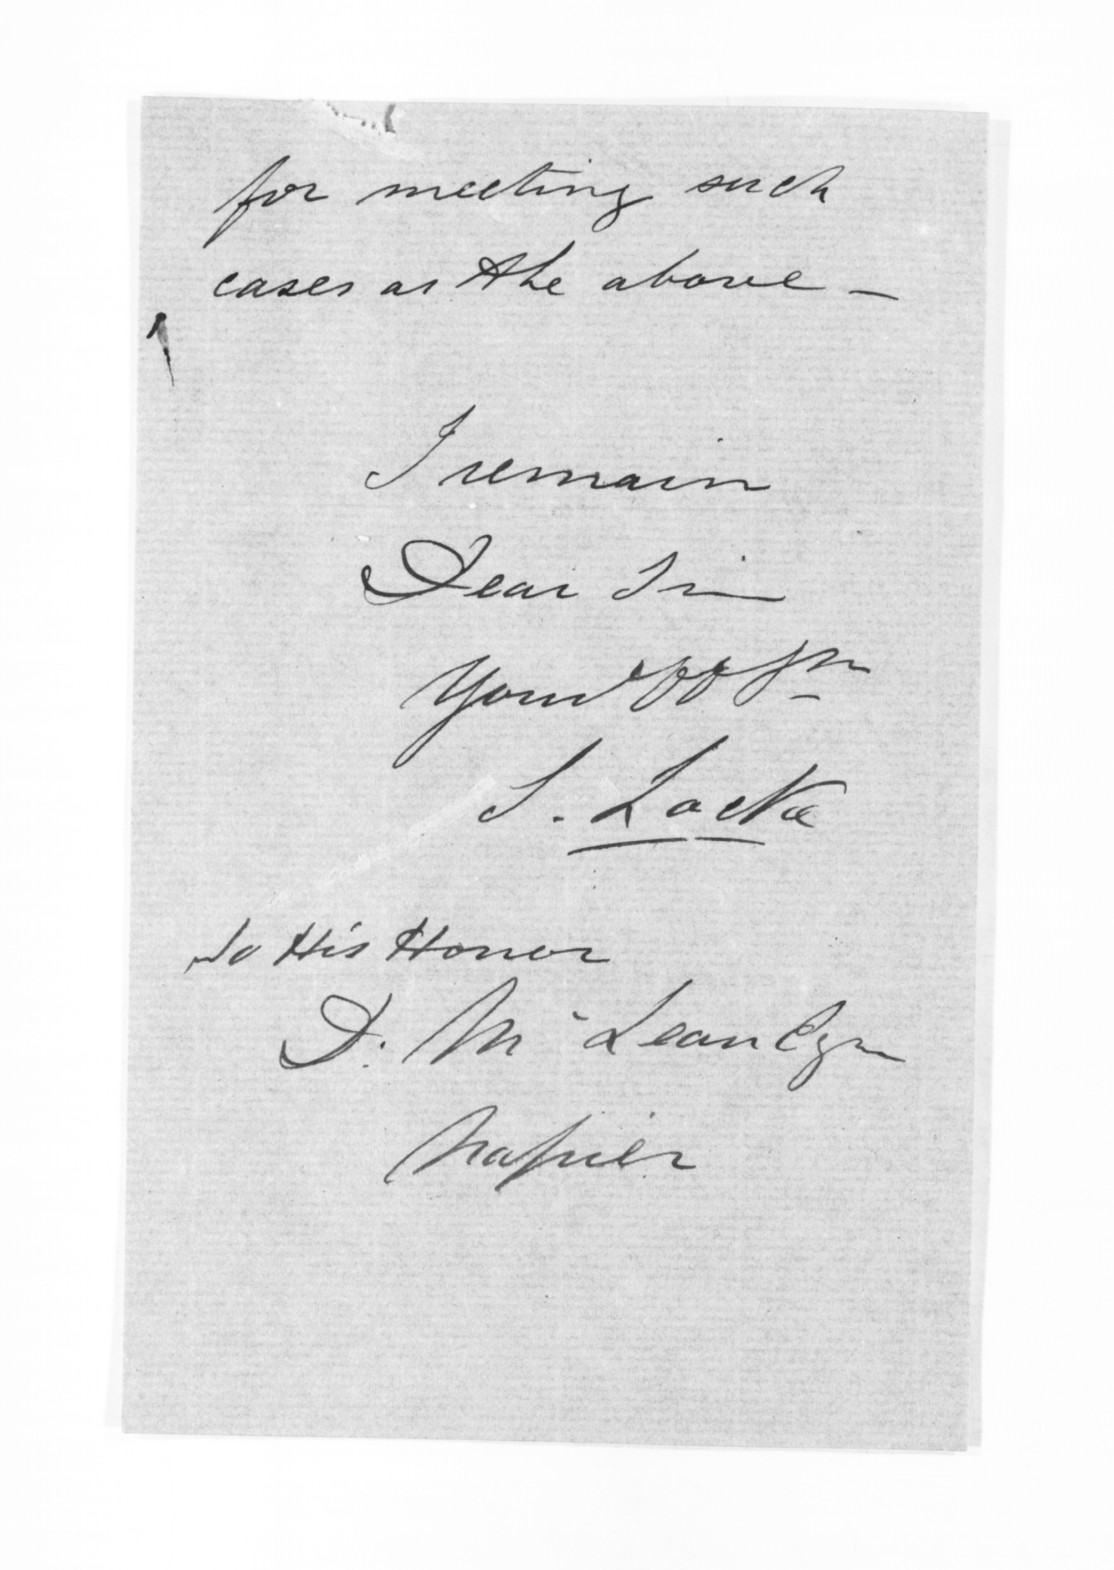 for meeting such
cases as the above —
I remain
Dear Sir
Yours
S. Locke
To His Honor
D. McLean Esqr
Napier